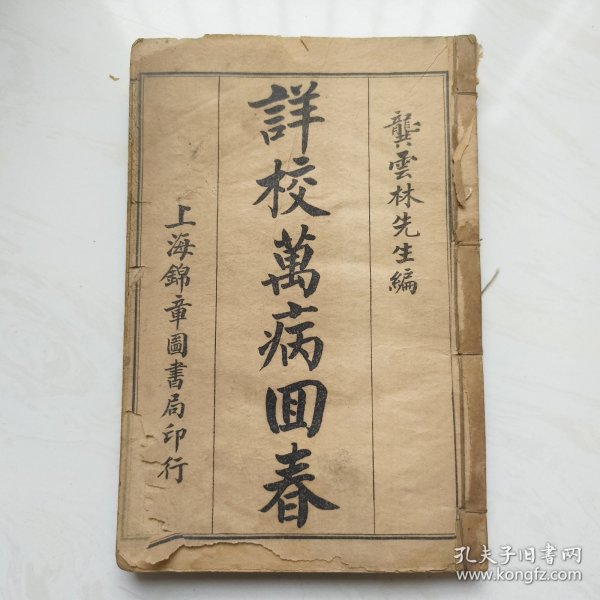 龔雲林先生編
詳校萬病囬春
上海錦章圖書局印行
孔夫子旧书网
www.kongfz.com